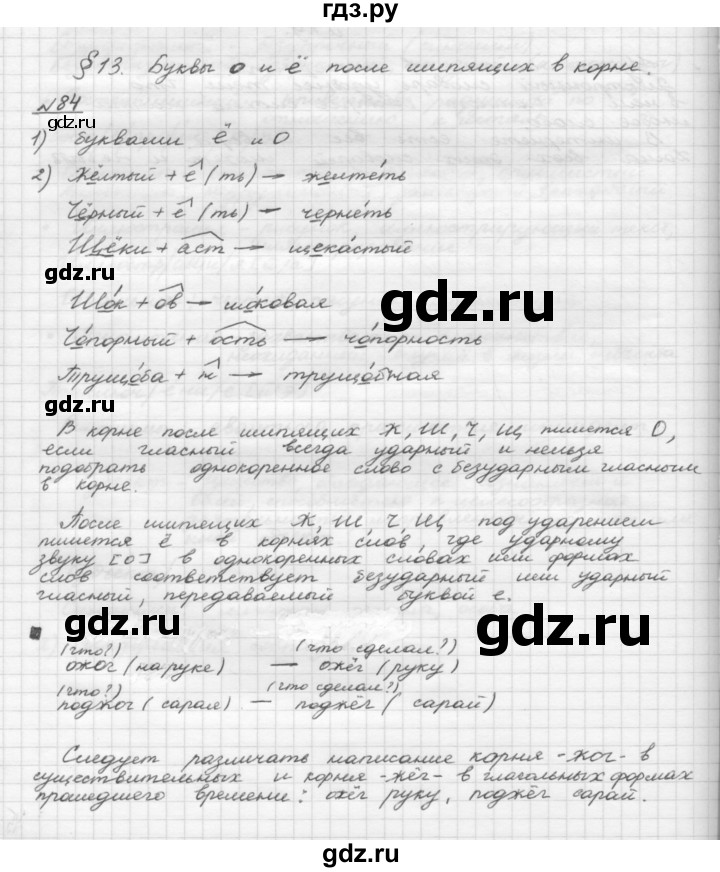 гдз.ру
§13. Буквы о и ё после шипящих в корне.
№84
1) буквами ё и О
2) Жёлтый + е (ть) → желтеть
Чёрный + е (ть) → чернеть
Щёки + аст → щекастый
gdz.ru
Шок + ов → шоковая
gdz.ru
Чопорный + ость → чопорность
Трущоба + н → трущобная
gdz.ru
В корне после шипящих Ж, Ш, Ч, Щ пишется О,
если гласный всегда ударный и нельзя
подобрать однокоренное слово с безударным гласным
в корне.
После шипящих Ж, Ш, Ч, Щ под ударением
пишется ё в корнях слов, где ударному
звуку [о] в однокоренных словах или формах
слов соответствует безударный или ударный
гласный, передаваемый буквой е.
gdz.ru
(что?) (что сделал?)
ожог (на руке) — ожёг (руку)
(что?) (что сделал?)
поджог (сарая) — поджёг (сарай)
Следует различать написание корня -жог- в
существительных и корня -жёг- в глагольных формах
прошедшего времени: ожёг руку, поджёг сарай.
gdz.ru